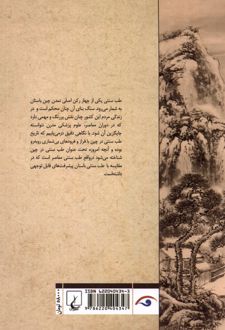 طب سنتی یکی از چهار رکن اصلی تمدن چین باستان
به شمار می‌رود. سنگ بنای آن چنان محکم است و در
زندگی مردم این کشور چنان نقش پررنگ و مهمی دارد
که در دوران معاصر، علوم پزشکی مدرن نتوانسته
جایگزین آن شود. با نگاهی دقیق درمی‌یابیم که تاریخ
طب سنتی در چین با فراز و فرودهای بی‌شماری روبه‌رو
بوده و آنچه امروزه تحت عنوان طب سنتی در چین
شناخته می‌شود درواقع طب سنتی معاصر است که در
مقایسه با طب سنتی باستان پیشرفت‌های قابل توجهی
داشته‌است.
ISBN 6220404343
9 786220 404347